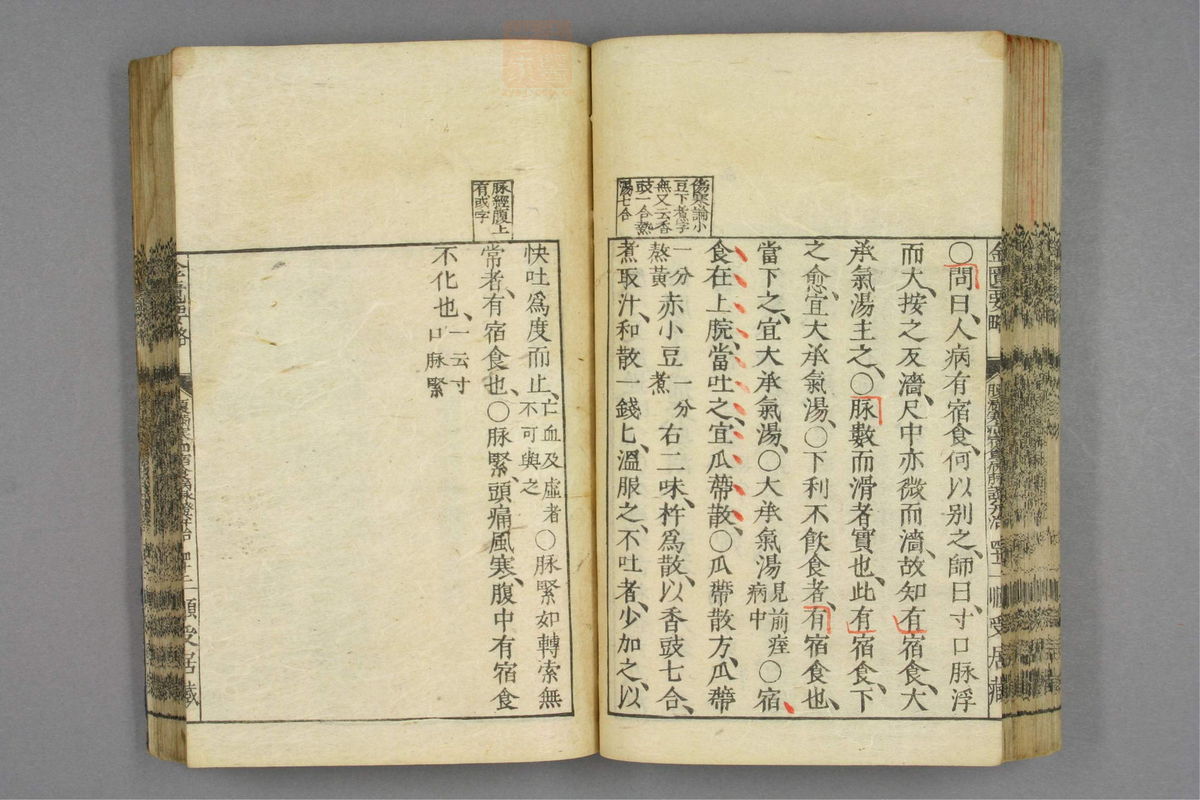 傷寒論小
豆下煮字
無又云香
豉一合熱
湯七合
金匱要略
〇問曰、人病有宿食、何以別之、師曰、寸口脉浮
而大、按之反濇、尺中亦微而濇、故知有宿食、大
承氣湯主之、〇脉數而滑者實也、此有宿食、下
之愈、宜大承氣湯、〇下利不飲食者、有宿食也、
當下之、宜大承氣湯、〇大承氣湯見前痙病中〇宿
食在上脘、當吐之、宜瓜蔕散、〇瓜蔕散方、瓜蔕
一分熬黃赤小豆一分煮右二味、杵為散、以香豉七合、
煮取汁、和散一錢匕、溫服之、不吐者、少加之、以
脉經腹上
有或字
快吐爲度而止、亡血及虛者不可與之〇脉緊如轉索無
常者、有宿食也、〇脉緊、頭痛風寒、腹中有宿食
不化也、一云寸口脉緊
順受居藏